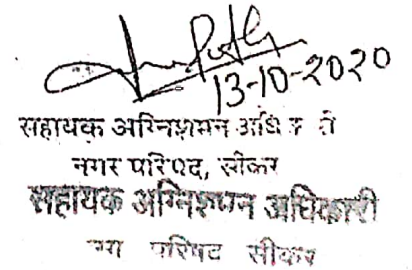 13-10-2020
सहायक अग्निशमन अधिकारी
नगर परिषद, सीकर
सहायक अग्निशमन अधिकारी
परिषद सीकर